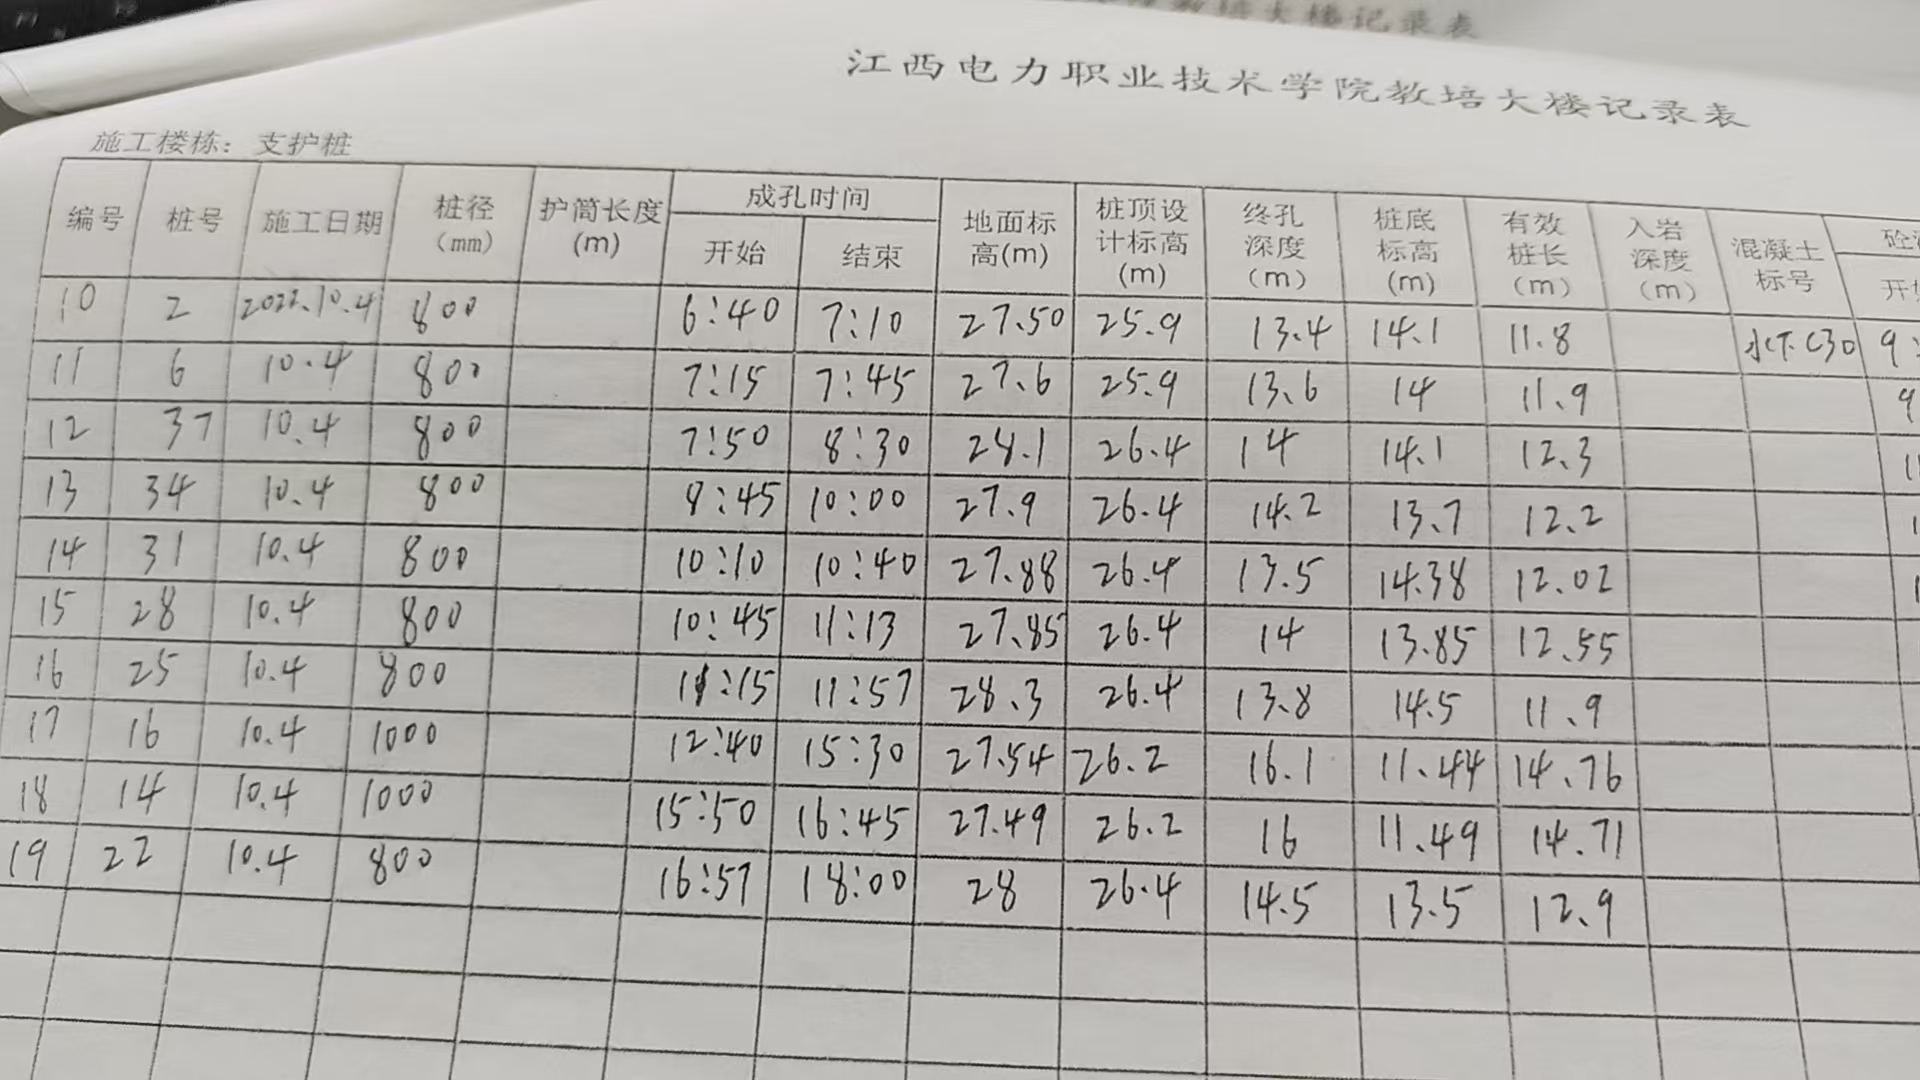 江西电力职业技术学院教培大楼记录表
施工楼栋：支护桩
编号 桩号 施工日期 桩径（mm） 护筒长度(m) 成孔时间 开始 结束 地面标高(m) 桩顶设计标高(m) 终孔深度（m） 桩底标高(m) 有效桩长（m） 入岩深度（m） 混凝土标号
10 2 2022.10.4 800 6:40 7:10 27.50 25.9 13.4 14.1 11.8 水下C30
11 6 10.4 800 7:15 7:45 27.6 25.9 13.6 14 11.9
12 37 10.4 800 7:50 8:30 28.1 26.4 14 14.1 12.3
13 34 10.4 800 8:45 10:00 27.9 26.4 14.2 13.7 12.2
14 31 10.4 800 10:10 10:40 27.88 26.4 13.5 14.38 12.02
15 28 10.4 800 10:45 11:13 27.85 26.4 14 13.85 12.55
16 25 10.4 800 11:15 11:57 28.3 26.4 13.8 14.5 11.9
17 16 10.4 1000 12:40 15:30 27.54 26.2 16.1 11.44 14.76
18 14 10.4 1000 15:50 16:45 27.49 26.2 16 11.49 14.71
19 22 10.4 800 16:57 18:00 28 26.4 14.5 13.5 12.9